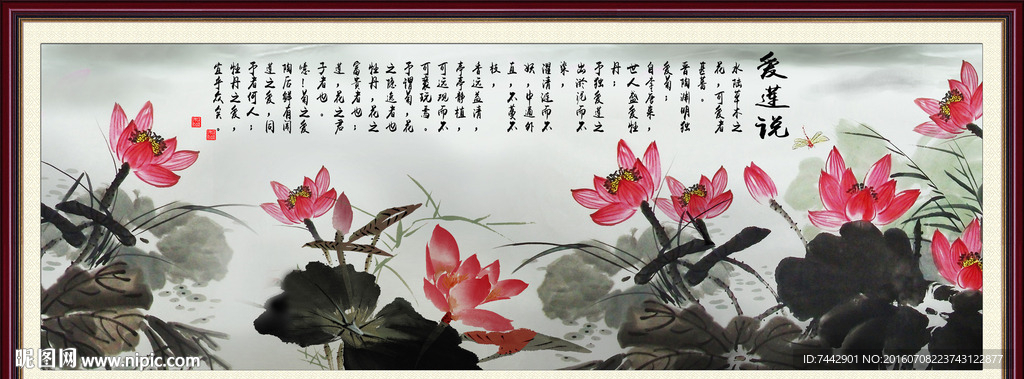 爱莲说
水陆草木之
花，可爱者
甚蕃。
晋陶渊明独
爱菊；
自李唐来，
世人盛爱牡
丹；
予独爱莲之
出淤泥而不
染，
濯清涟而不
妖，中通外
直，不蔓不
枝，
香远益清，
亭亭静植，
可远观而不
可亵玩焉。
予谓菊，花
之隐逸者也
牡丹，花之
富贵者也；
莲，花之君
子者也。
噫！菊之爱
陶后鲜有闻
莲之爱，同
予者何人；
牡丹之爱，
宜乎众矣。
昵图网 www.nipic.com
ID:7442901 NO:20160708223743122877